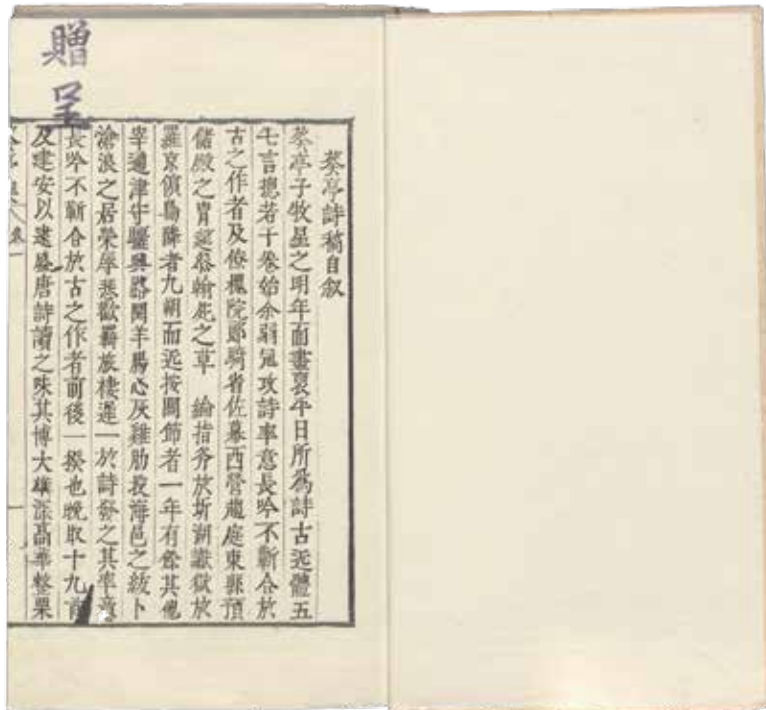 贈呈
葵亭詩稿自叙
葵亭子牧星之明年面晝裒平日所爲詩古近體五
七言摠若干卷始余弱冠攻詩率意長吟不蘄合於
古之作者及僚槐院郎騎省佐幕西營龍庭東縣預
儲殿之胄筵忝翰苑之草 綸指斧於圻湖讞獄於
羅京儐島隣者九朔而近按關節者一年有餘其他
宰邇津守驪興路関羊腸心灰雞肋投海邑之紱卜
滄浪之居榮辱悲歡羇旅棲遲一於詩發之其率意
長吟不蘄合於古之作者前後一揆也晚取十九首
及建安以逮盛唐詩讀之味其博大雄深高華整栗